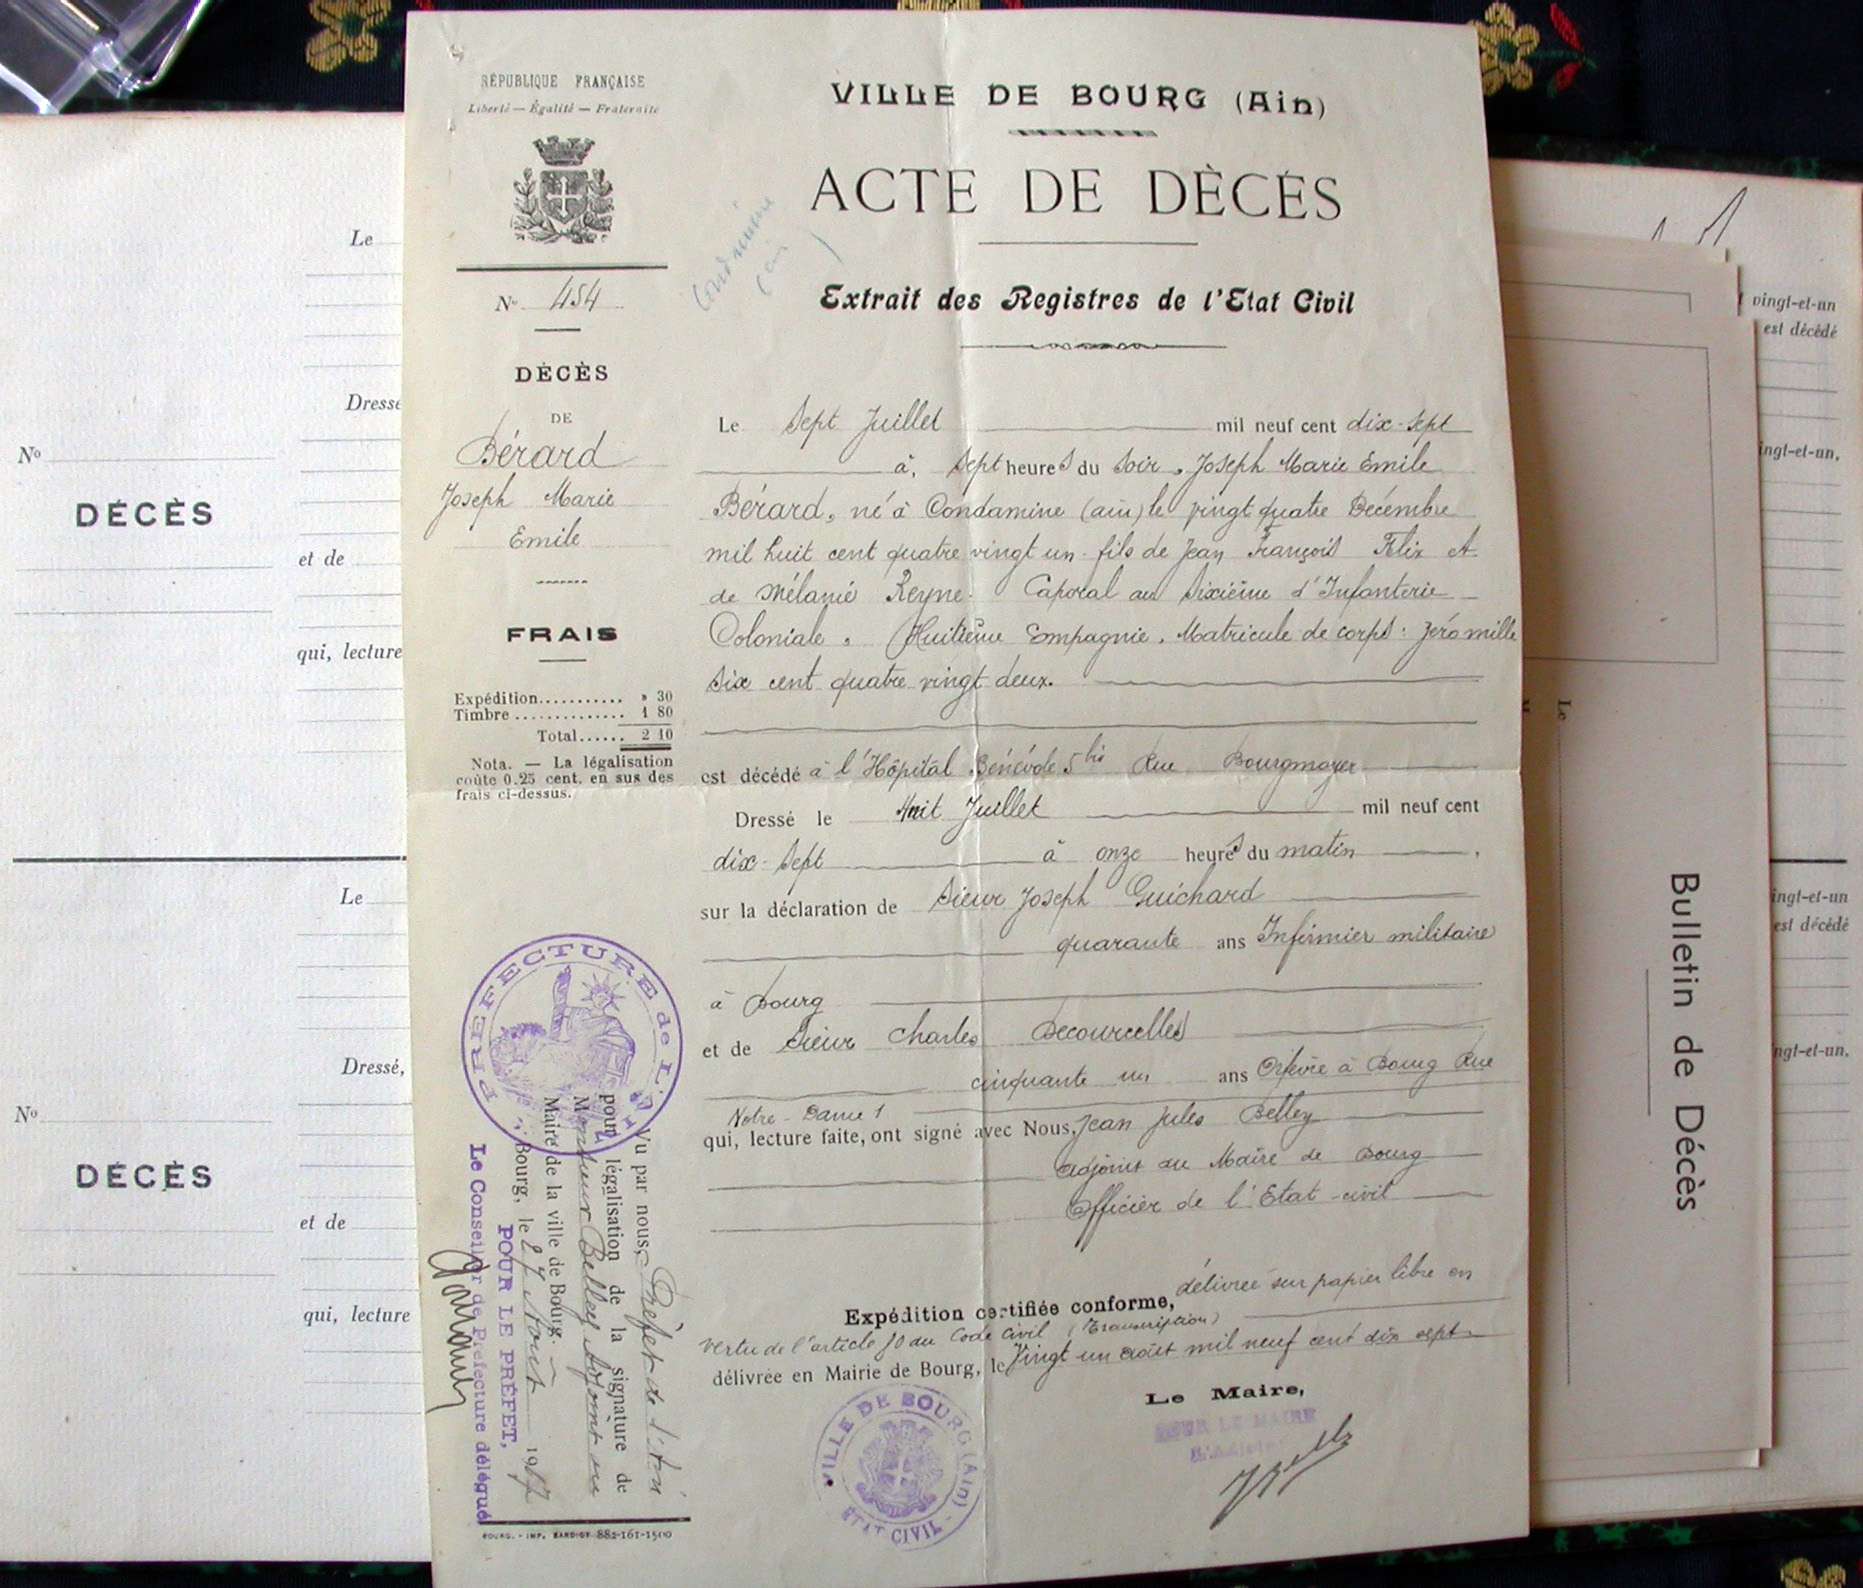 RÉPUBLIQUE FRANÇAISE
Liberté — Égalité — Fraternité
No 454
DÉCÈS
DE
Bérard
Joseph Marie
Emile
FRAIS
Expédition........... » 30
Timbre.............. 1 80
Total...... 2 10
Nota. — La légalisation
coûte 0.25 cent. en sus des
frais ci-dessus.
VILLE DE BOURG (Ain)
ACTE DE DÈCÈS
Condamine
(ain)
Extrait des Registres de l'Etat Civil
Le Sept Juillet mil neuf cent dix-sept
à, sept heures du soir, Joseph Marie Emile
Bérard, né à Condamine (ain) le vingt quatre Décembre
mil huit cent quatre vingt un fils de Jean François Félix et
de Mélanie Reyne. Caporal au Sixième d'Infanterie
Coloniale, Huitième Compagnie, Matricule de corps: zéro mille
six cent quatre vingt deux.
est décédé à l'Hôpital Bénévole 5 bis Rue Bourgmayer
Dressé le Huit Juillet mil neuf cent
dix-sept à onze heures du matin
sur la déclaration de Sieur Joseph Guichard
quarante ans Infirmier militaire
à Bourg
et de Sieur Charles Decourcelles
cinquante un ans Orfèvre à Bourg Rue
Notre-Dame 1
qui, lecture faite, ont signé avec Nous, Jean Jules Belley
adjoint au Maire de Bourg
Officier de l'Etat-civil
Expédition certifiée conforme, délivrée sur papier libre en
vertu de l'article 80 du Code Civil (Transcription)
délivrée en Mairie de Bourg, le Vingt un août mil neuf cent dix sept
Le Maire,
POUR LE MAIRE
L'Adjoint
VILLE DE BOURG (Ain)
ETAT CIVIL
PREFECTURE de L'AIN
Vu par nous, Préfet de l'Ain
pour légalisation de la signature de
Monsieur Belley Adjoint au
Maire de la ville de Bourg.
Bourg, le 27 Août 1917
POUR LE PRÉFET,
Le Conseiller de Préfecture délégué
BOURG. - IMP. 882-161-1500
Le
Dressé
No
DÉCÈS
et de
qui, lecture
Le
Dressé,
No
DÉCÈS
et de
qui, lecture
vingt-et-un
est décédé
ingt-et-un,
Le
Bulletin de Décès
ingt-et-un
est décédé
ngt-et-un,